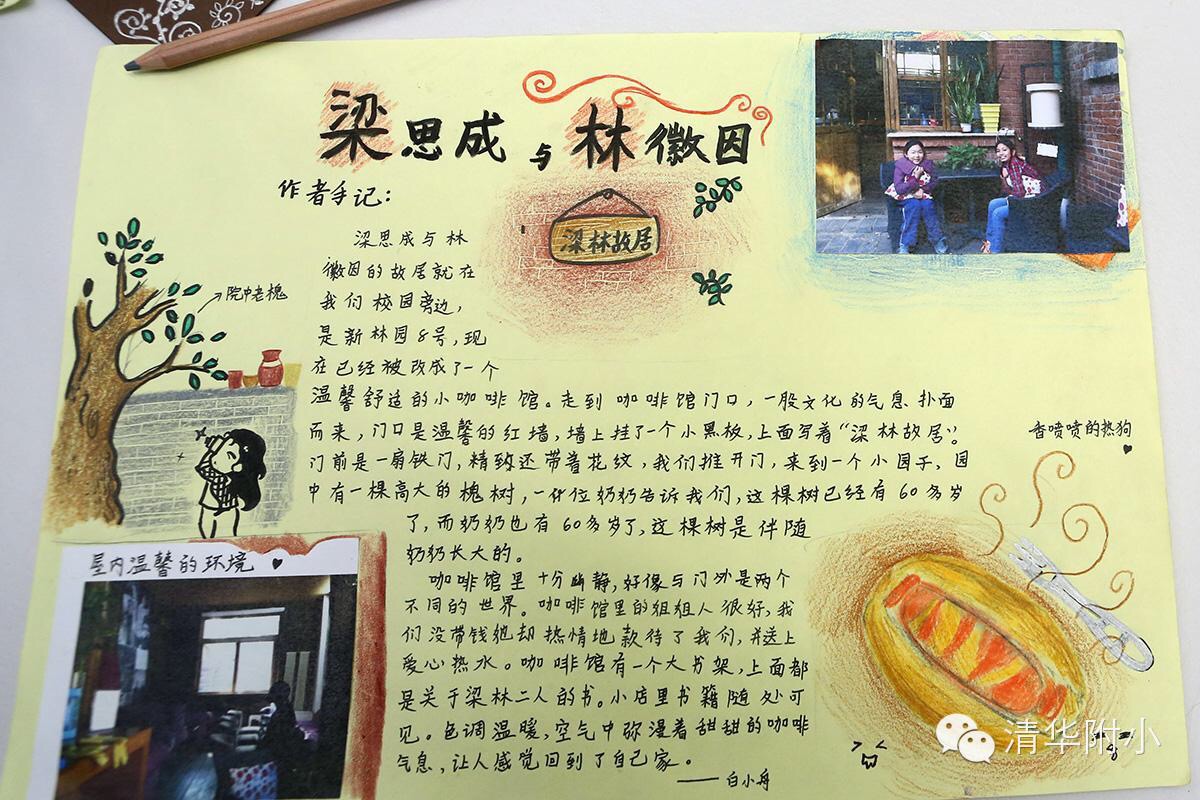 梁思成与林徽因
作者手记：
梁林故居
梁思成与林
徽因的故居就在
我们校园旁边，
是新林园8号，现
在已经被改成了一个
温馨舒适的小咖啡馆。走到咖啡馆门口，一股文化的气息扑面
而来，门口是温馨的红墙，墙上挂了一个小黑板，上面写着“梁林故居”。
门前是一扇铁门，精致还带着花纹，我们推开门，来到一个小园子，园
中有一棵高大的槐树，一位奶奶告诉我们，这棵树已经有60多岁
了，而奶奶也有60多岁了，这棵树是伴随
奶奶长大的。
咖啡馆里十分幽静，好像与门外是两个
不同的世界。咖啡馆里的姐姐人很好，我
们没带钱她却热情地款待了我们，并送上
爱心热水。咖啡馆有一个大书架，上面都
是关于梁林二人的书。小店里书籍随处可
见。色调温暖，空气中弥漫着甜甜的咖啡
气息，让人感觉回到了自己家。
——白小舟
院中老槐
屋内温馨的环境
香喷喷的热狗
清华附小